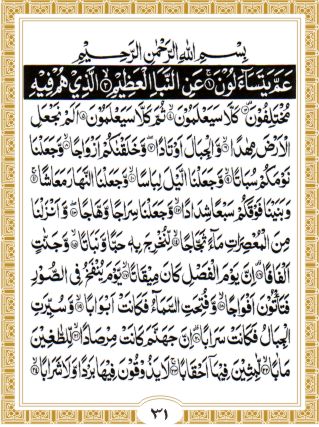 بِسْمِ اللهِ الرَّحْمٰنِ الرَّحِيْمِ
عَمَّ يَتَسَآءَلُوْنَ ۝١ عَنِ النَّبَاِ الْعَظِيْمِ ۝٢ الَّذِيْ هُمْ فِيْهِ
مُخْتَلِفُوْنَ ۝٣ كَلَّا سَيَعْلَمُوْنَ ۝٤ ثُمَّ كَلَّا سَيَعْلَمُوْنَ ۝٥ اَلَمْ نَجْعَلِ
الْاَرْضَ مِهٰدًا ۝٦ وَّالْجِبَالَ اَوْتَادًا ۝٧ وَّخَلَقْنٰكُمْ اَزْوَاجًا ۝٨ وَّجَعَلْنَا
نَوْمَكُمْ سُبَاتًا ۝٩ وَّجَعَلْنَا الَّيْلَ لِبَاسًا ۝١٠ وَّجَعَلْنَا النَّهَارَ مَعَاشًا ۝١١
وَّبَنَيْنَا فَوْقَكُمْ سَبْعًا شِدَادًا ۝١٢ وَّجَعَلْنَا سِرَاجًا وَّهَّاجًا ۝١٣ وَّاَنْزَلْنَا
مِنَ الْمُعْصِرٰتِ مَآءً ثَجَّاجًا ۝١٤ لِّنُخْرِجَ بِهٖ حَبًّا وَّنَبَاتًا ۝١٥ وَّجَنّٰتٍ
اَلْفَافًا ۝١٦ اِنَّ يَوْمَ الْفَصْلِ كَانَ مِيْقَاتًا ۝١٧ يَّوْمَ يُنْفَخُ فِى الصُّوْرِ
فَتَاْتُوْنَ اَفْوَاجًا ۝١٨ وَّفُتِحَتِ السَّمَآءُ فَكَانَتْ اَبْوَابًا ۝١٩ وَّسُيِّرَتِ
الْجِبَالُ فَكَانَتْ سَرَابًا ۝٢٠ اِنَّ جَهَنَّمَ كَانَتْ مِرْصَادًا ۝٢١ لِّلطّٰغِيْنَ
مَاٰبًا ۝٢٢ لّٰبِثِيْنَ فِيْهَآ اَحْقَابًا ۝٢٣ لَا يَذُوْقُوْنَ فِيْهَا بَرْدًا وَّلَا شَرَابًا ۝٢٤
٣١